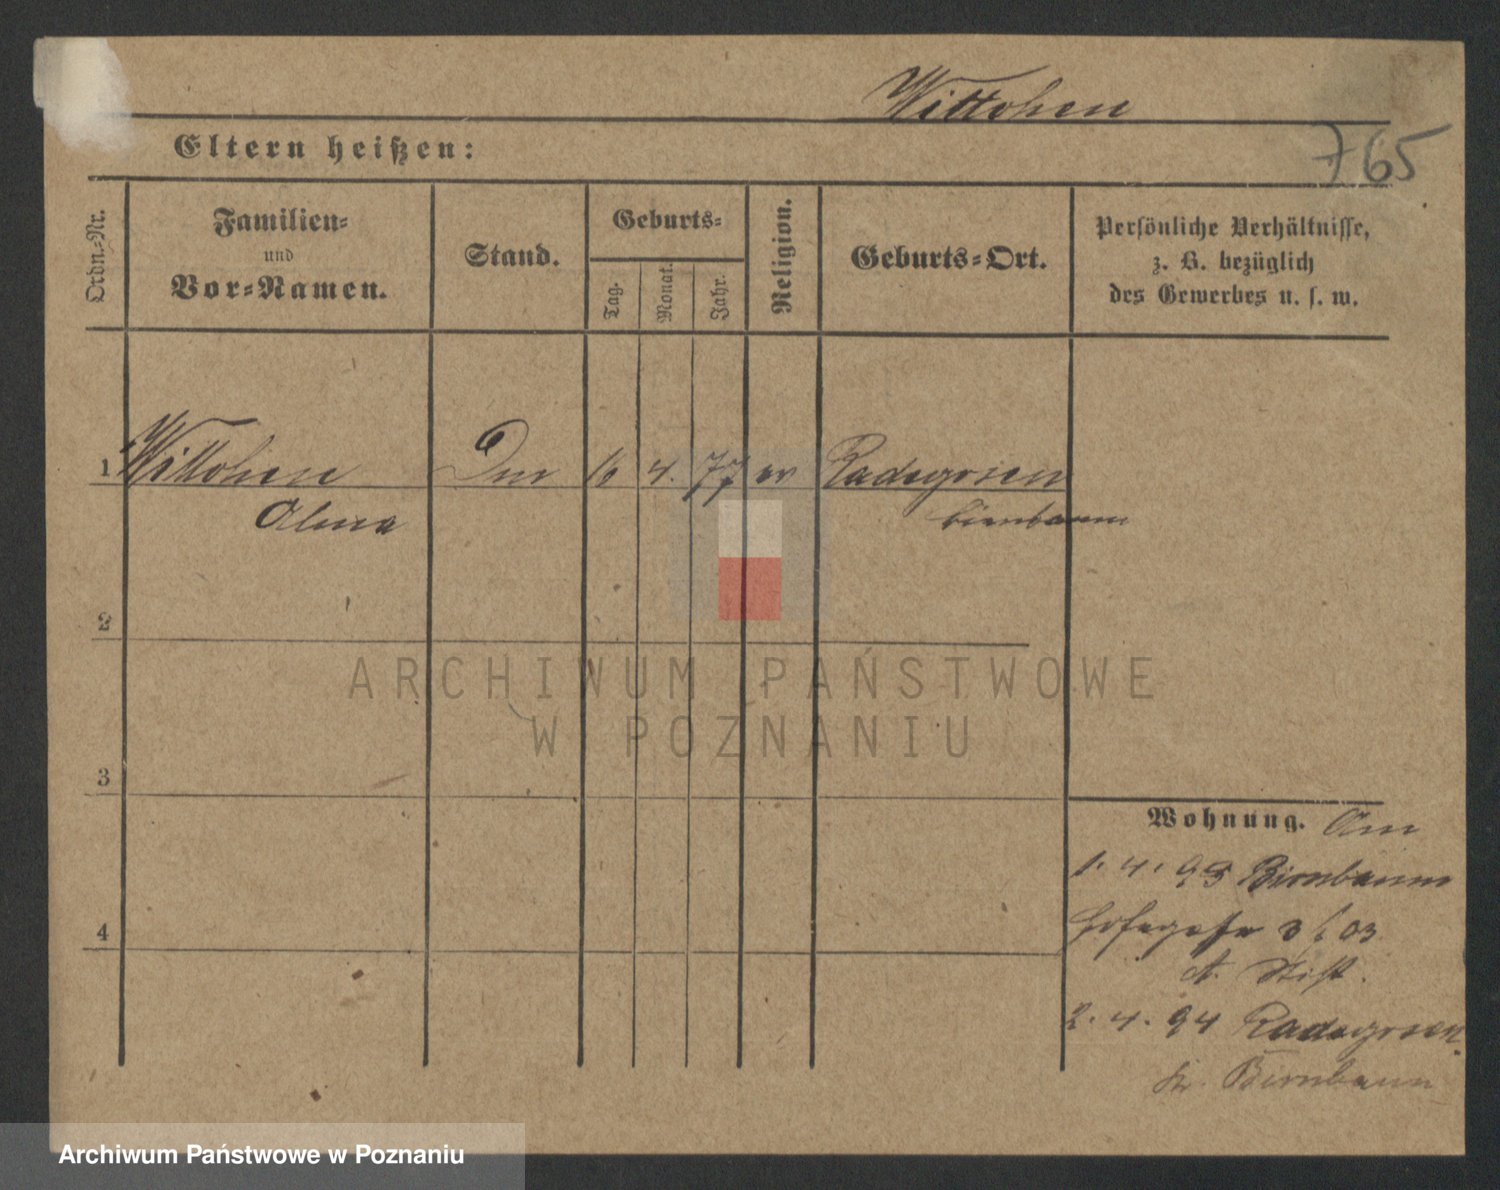 Wittchen
765
Eltern heißen:
Ordn.-Nr.
Familien-
und
Vor-Namen.
Stand.
Geburts-
Tag.
Monat.
Jahr.
Religion.
Geburts-Ort.
Persönliche Verhältnisse,
z. B. bezüglich
des Gewerbes u. s. w.
1 Wittchen 4. 77 ev
Alma Birnbaum
2
ARCHIWUM PAŃSTWOWE
W POZNANIU
3
Wohnung. Am
1. 4. 93 Birnbaum
03
Stift.
2. 4. 94
Kr. Birnbaum
4
Archiwum Państwowe w Poznaniu